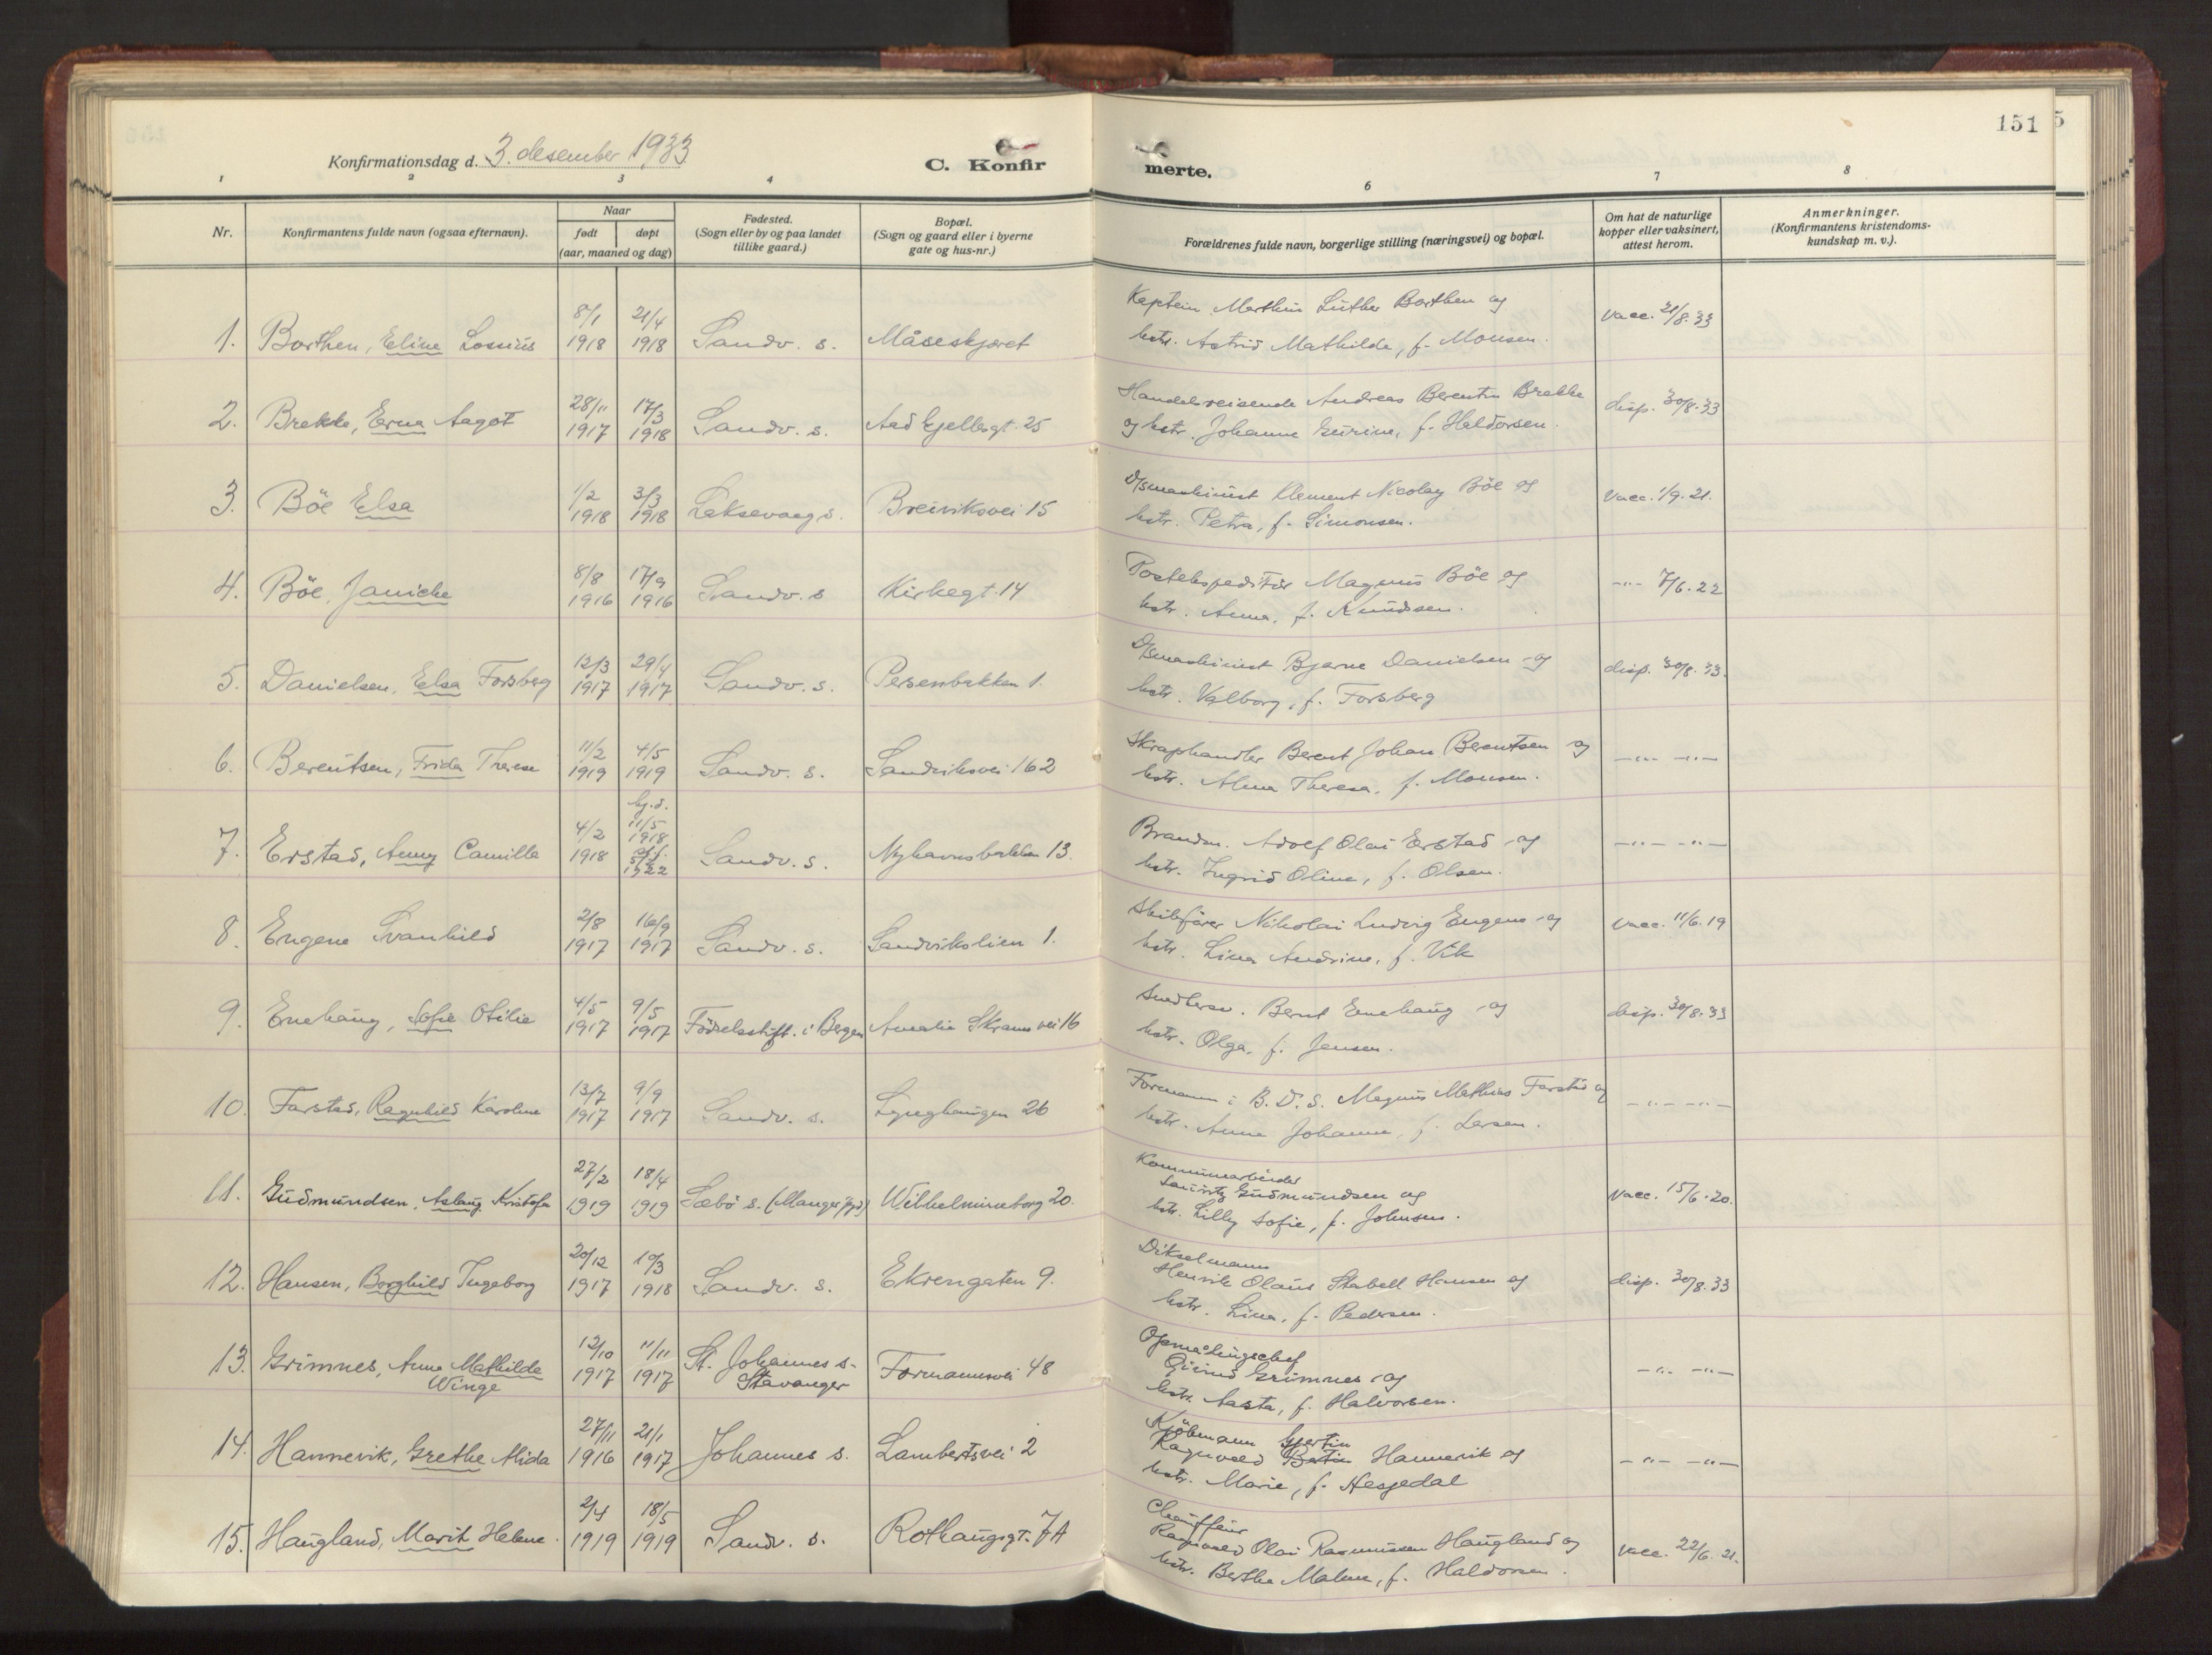 151
5
Konfirmationsdag d. 3. desember 1933
C. Konfir merte.
1 2 3 4 6 7 8
Nr.
Konfirmantens fulde navn (ogsaa efternavn).
Naar
født døpt
(aar, maaned og dag)
Fødested.
(Sogn eller by og paa landet
tillike gaard.)
Bopæl.
(Sogn og gaard eller i byerne
gate og hus-nr.)
Forældrenes fulde navn, borgerlige stilling (næringsvei) og bopæl.
Om hat de naturlige
kopper eller vaksinert,
attest herom.
Anmerkninger.
(Konfirmantens kristendoms-
kundskap m. v.).
8/1 21/4 Kaptein Marthin Luther Borthen og vacc. 21/8.33
1. Borthen, Eline Lossius 1918 1918 Sandv. s. Måseskjæret hstr. Astrid Mathilde, f. Monsen.
28/11 17/3 Handelsreisende Andreas Berentin Brekke disp. 30/8.33
2. Brekke, Erna Aagot 1917 1918 Sandv. s. Aad Gjellesgt. 25 og hstr. Johanne Gurine, f. Haldorsen.
1/2 3/3 D/smaskinist Klement Nicolay Böe og vacc. 1/9.21.
3. Böe Elsa 1918 1918 Laksevaag s. Breiviksvei 15 hstr. Petra, f. Simonsen.
8/8 17/9 Postekspeditör Magnus Böe og -"- 7/6.22
4. Böe, Janicke 1916 1916 Sandv. s Kirkegt. 14 hstr. Anna, f. Knudsen.
12/3 29/4 D/smaskinist Bjarne Danielsen og disp. 30/8.33.
5. Danielsen, Elsa Forsberg 1917 1917 Sandv. s. Persenbakken 1. hstr. Valborg, f. Forsberg
11/2 4/5 Skraphandler Berent Johan Berentsen og -"- -"-
6. Berentsen, Frida Therese 1919 1919 Sandv. s. Sandviksvei 162 hstr. Alma Theresa, f. Monsen.
hj.d.
4/2 11/5 1918 Brandm. Adolf Olai Erstad og -"- -"-
7. Erstad, Anny Camilla 1918 1922 Sandv. s. Nyhavnsbakken 13. hstr. Ingrid Oline, f. Olsen.
2/8 16/9 Skibsfører Nikolai Ludvig Engene og vacc. 11/6.19
8. Engene Svanhild 1917 1917 Sandv. s. Sandvikslien 1. hstr. Lina Andrine, f. Vik
4/5 9/5 Snedkersv. Bernt Ernehaug og disp. 30/8.33
9. Ernehaug, Sofie Otilie 1917 1917 Födselsstift. i Bergen Amalie Skrams vei 16 hstr. Olga, f. Jensen.
13/7 9/9 Formann i B.D.S. Magnus Mathias Farstad og -"- -"-
10. Farstad, Ragnhild Karoline 1917 1917 Sandv. s. Lynghaugen 26 hstr. Anna Johanne, f. Larsen.
27/2 18/4 Kommunearbeider
Lauritz Gudmundsen og vacc. 15/6.20.
11. Gudmundsen, Aslaug Kristofa 1919 1919 Sæbö s. (Manger pgd) Wilhelmineborg 20. hstr. Lilly Sofie, f. Johnsen.
20/12 10/3 Dikselmann
Henrik Olaus Stabell Hansen og disp. 30/8.33
12. Hansen, Borghild Ingeborg 1917 1918 Sandv. s. Ekrengaten 9. hstr. Lina, f. Pedersen.
12/10 11/11 Opmålingschef
Grimnes og -"- -"-
13. Grimnes, Anna Mathilde Winge 1917 1917 St. Johannes s. Stavanger Formannsvei 48 hstr. Aasta, f. Halvorsen.
27/11 21/1 Kjöbmann Gjertin
Ragnvald Bertin Hannevik og -"- -"-
14. Hannevik, Grethe Alida 1916 1917 Johannes s. Lambertsvei 2 hstr. Marie, f. Hesjedal
2/4 18/5 Chauffeur
Ragnvald Olai Rasmussen Haugland og vacc. 22/6.21.
15. Haugland, Marit Helene. 1919 1919 Sandv. s. Rothaugsgt. 7A hstr. Berthe Malene, f. Haldorsen.